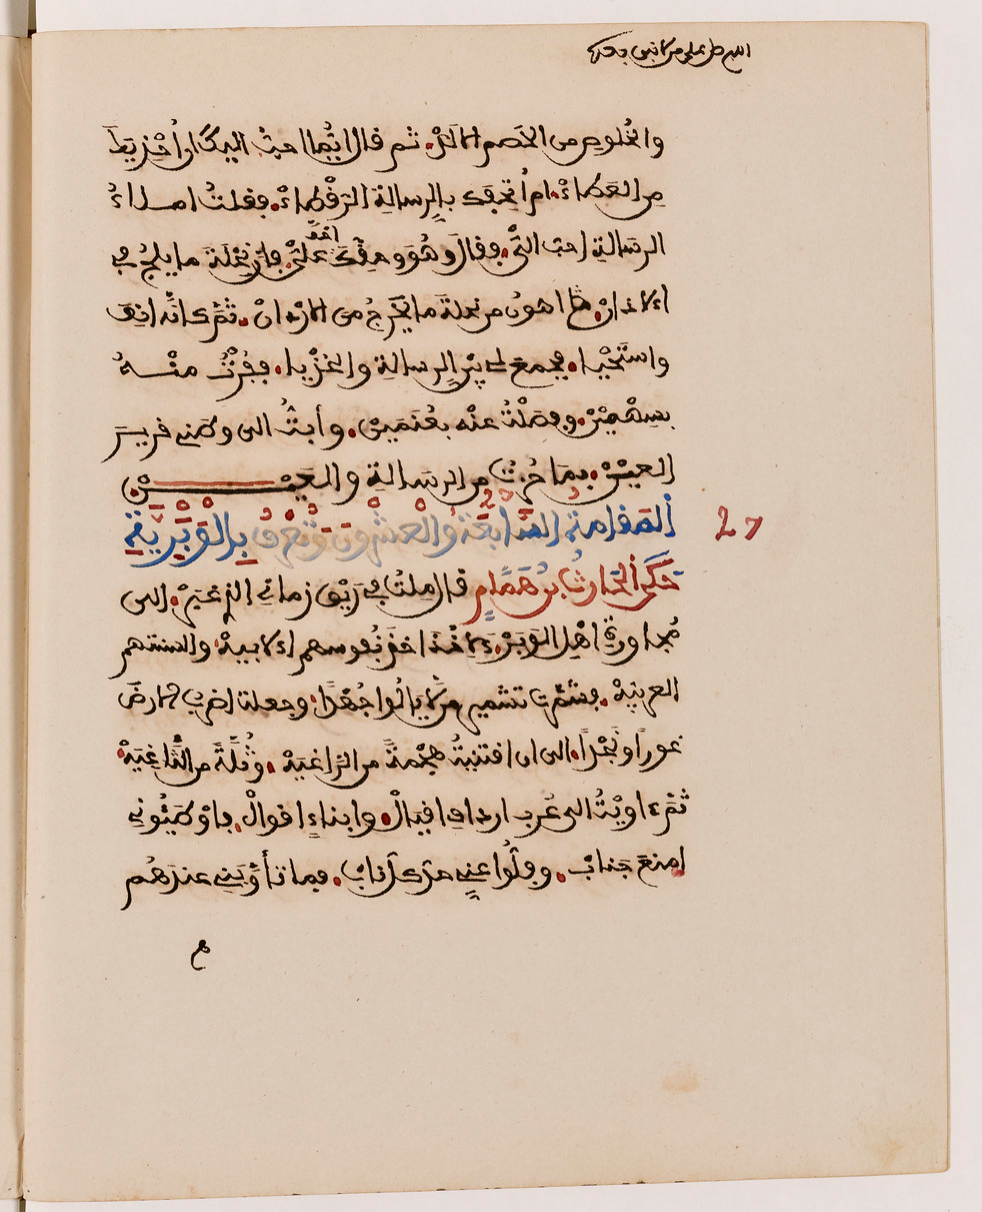 اللهم صل على من لا نبي بعده
والخلوص من الخصم الالد. ثم قال ايما احب اليك ان أحذيك
من العطاء. ام أتحفك بالرسالة الرقطاء. فقلت املاء
الرسالة احب الي. فقال وهو وحقك اخف علي. فان نحلة ما يلج في
الاذان. اهون من نحلة ما يخرج من الاردان. ثم كأنه انف
واستحيا. فجمع لي بين الرسالة والحذيا. ففزت منه
بسهمين. وفصلت عنه بغنمين. وأبت الى وطني قرير
العين. بما حزت من الرسالة والعين
المقامة السابعة والعشرون وتعرف بالوبرية
27
حكى الحارث بن همام قال ملت في ريق زماني الذي غبر. الى
مجاورة اهل الوبر. لاخذ اخذ نفوسهم الابية. والسنتهم
العربية. فشمرت تشمير من لا يالوا جهدا. وجعلت اضرب في الارض
غورا ونجدا. الى ان اقتنيت هجمة من الراغية. وثلة من الثاغية.
ثم اويت الى عرب ارداف اقيال. وابناء اقوال. فاوطنوني
امنع جناب. وفلوا عني حد كل ناب. فما تأوبني عندهم
هم